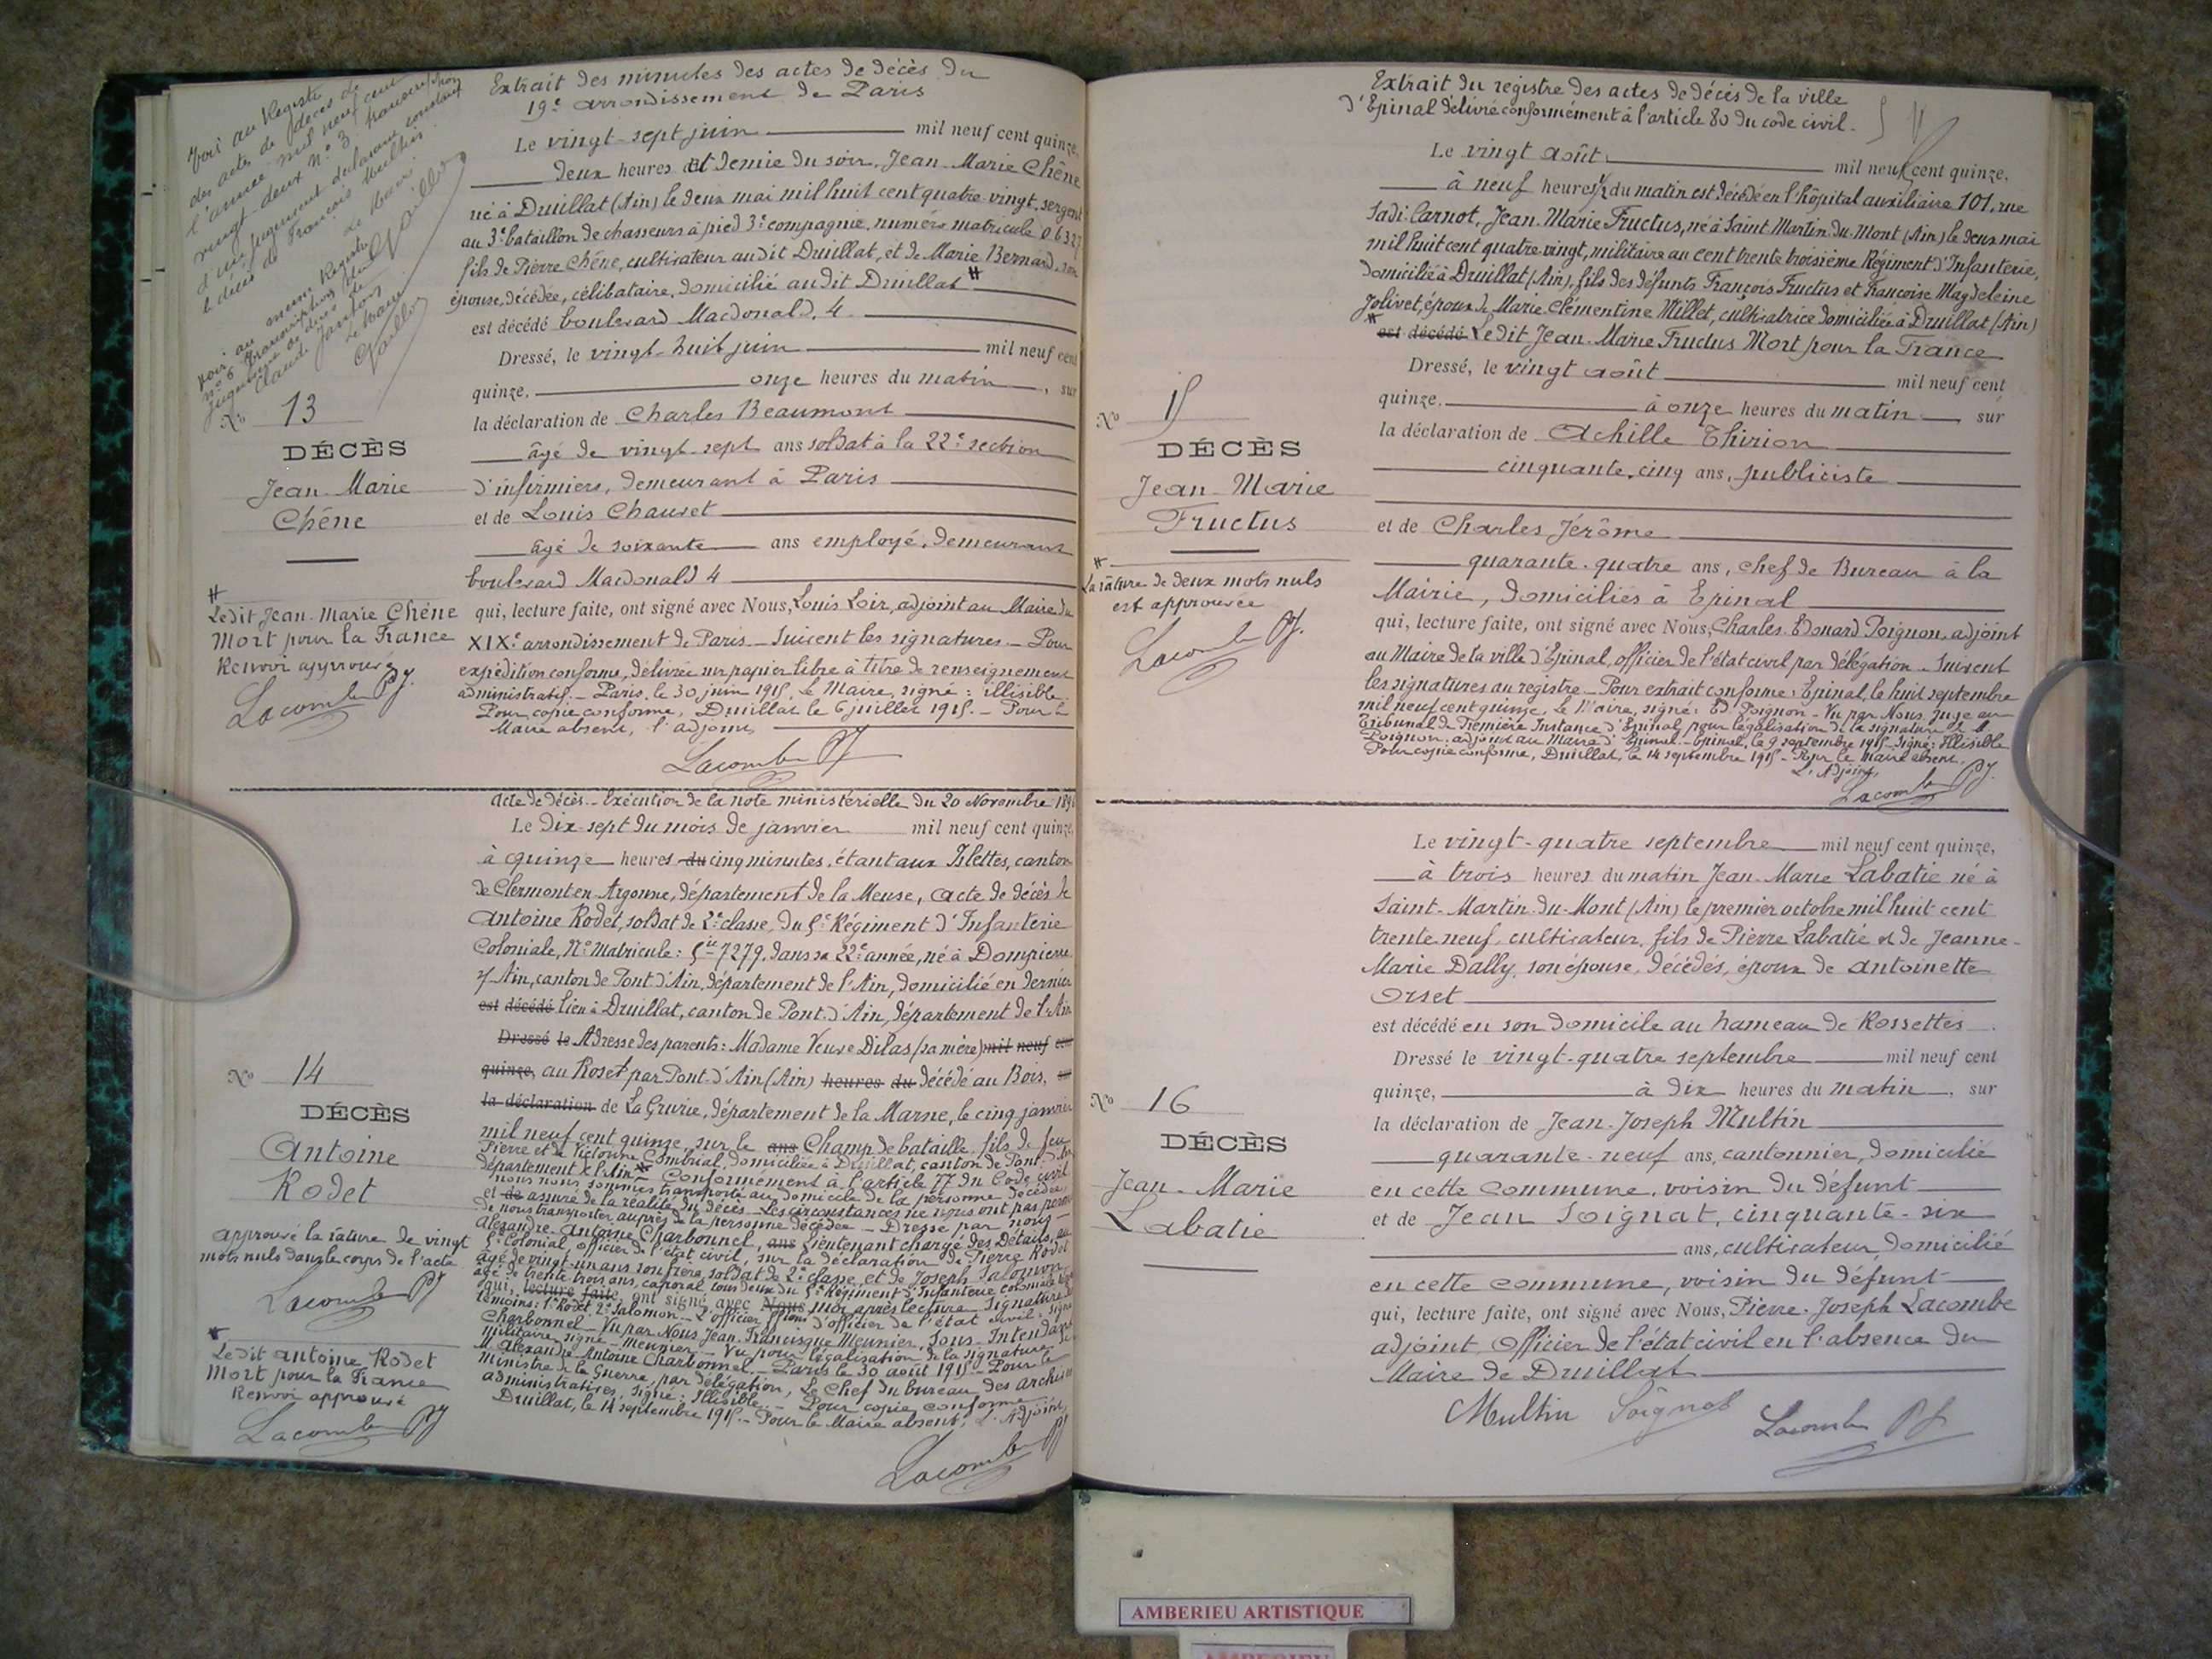 Voir au Registre
des actes de décès de
l'année mil neuf cent
vingt-deux N° 3 transcription
d'un jugement déclarant constant
le décès de François Multin
Le Maire
voir au même Registre
n° 6 transcription d'un
jugement de
Claude
Le Maire
Extrait des minutes des actes de décès du
19e arrondissement de Paris
Le vingt-sept juin mil neuf cent quinze,
deux heures et demie du soir, Jean-Marie Chêne
né à Druillat (Ain) le deux mai mil huit cent quatre-vingt, sergent
au 3e bataillon de chasseurs à pied 3e compagnie, numéro matricule 06327
fils de Pierre Chêne, cultivateur audit Druillat, et de Marie Bernard, son
épouse, décédée, célibataire, domicilié audit Druillat #
est décédé boulevard Macdonald, 4
Dressé, le vingt-huit juin mil neuf cent
quinze, onze heures du matin, sur
la déclaration de Charles Beaumont
âgé de vingt-sept ans soldat à la 22e section
d'infirmiers, demeurant à Paris
et de Louis Chauvet
âgé de soixante ans employé, demeurant
boulevard Macdonald 4
qui, lecture faite, ont signé avec Nous, Louis Loir, adjoint au Maire du
XIXe arrondissement de Paris - Suivent les signatures. - Pour
expédition conforme, délivrée sur papier libre à titre de renseignement
administratif. - Paris, le 30 juin 1915, le Maire, signé : illisible.
Pour copie conforme, Druillat le 6 juillet 1915. - Pour le
Maire absent, l'adjoint,
Lacombe PJ
N° 13
DÉCÈS
Jean-Marie
Chêne
#
Ledit Jean-Marie Chêne
Mort pour la France
Renvoi approuvé
Lacombe PJ.
Acte de décès - Exécution de la note ministérielle du 20 Novembre 189
Le dix-sept du mois de janvier mil neuf cent quinze,
à quinze heures du cinq minutes, étant aux Islettes, canton
de Clermont en Argonne, département de la Meuse, acte de décès de
Antoine Rodet, soldat de 2e classe, du 5e Régiment d'Infanterie
Coloniale, N° Matricule : 5ic 7279, dans sa 22e année, né à Dompierre
s/ Ain, canton de Pont d'Ain, département de l'Ain, domicilié en dernier
est décédé lieu à Druillat, canton de Pont-d'Ain, département de l'Ain
Dressé le Adresse des parents : Madame Veuve Dilas (sa mère) mil neuf cent
quinze, au Roset par Pont-d'Ain (Ain) heures du décédé au Bois, sur
la déclaration de La Grurie, département de la Marne, le cinq janvier
mil neuf cent quinze, sur le ans Champ de bataille, fils de feu
Pierre et de Victorine Combrial, domiciliée à Druillat, canton de Pont-d'Ain
département de l'Ain # Conformément à l'article 77 du Code civil
nous nous sommes transporté au domicile de la personne décédée
et de assuré de la réalité du décès - Les circonstances ne nous ont pas permis
de nous transporter auprès de la personne décédée - Dressé par nous
Alexandre-Antoine Charbonnel, ans Lieutenant chargé des Détails, au
5e Colonial, Officier de l'état civil, sur la déclaration de Pierre Rodet
âgé de vingt-un ans son frère, soldat de 2e classe, et de Joseph Salomon,
âgé de trente-trois ans, caporal, tous deux du 5e Régiment d'Infanterie coloniale
qui, lecture faite, ont signé avec Nous moi après lecture. Signature des
témoins : 1° Rodet 2° Salomon - L'officier d'officier de l'état civil, signé
Charbonnel - Vu par Nous, Jean-Francisque Meunier, Sous-Intendant
Militaire, signé - Meunier - Vu pour légalisation de la signature de
M. Alexandre-Antoine Charbonnel - Paris le 30 août 1915 - Pour le
Ministre de la Guerre, par délégation, Le Chef du bureau des archives
administratives, signé : Illisible. - Pour copie conforme
Druillat, le 14 septembre 1915. - Pour le Maire absent, L'Adjoint,
Lacombe PJ
N° 14
DÉCÈS
Antoine
Rodet
Approuvé la rature de vingt
mots nuls dans le corps de l'acte
Lacombe PJ
#
Ledit Antoine Rodet
Mort pour la France
Renvoi approuvé
Lacombe PJ
Extrait du registre des actes de décès de la ville
d'Epinal délivré conformément à l'article 80 du code civil.
Le vingt août mil neuf cent quinze,
à neuf heures 1/2 du matin est décédé en l'hôpital auxiliaire 101, rue
Sadi-Carnot, Jean-Marie Fructus, né à Saint-Martin-du-Mont (Ain) le deux mai
mil huit cent quatre-vingt, militaire au cent trente troisième Régiment d'Infanterie,
domicilié à Druillat (Ain), fils des défunts François Fructus et Françoise Magdeleine
Jolivet, époux de Marie Clémentine Millet, cultivatrice domiciliée à Druillat (Ain)
# est décédé Ledit Jean-Marie Fructus Mort pour la France
Dressé, le vingt août mil neuf cent
quinze, à onze heures du matin sur
la déclaration de Achille Thirion
cinquante-cinq ans, publiciste
et de Charles Jérôme
quarante-quatre ans, chef de Bureau à la
Mairie, domiciliés à Epinal
qui, lecture faite, ont signé avec Nous, Charles-Edouard Poignon, adjoint
au Maire de la ville d'Epinal, officier de l'état civil par délégation - Suivent
les signatures au registre - Pour extrait conforme : Epinal, le huit septembre
mil neuf cent quinze, le Maire, signé : Ed. Poignon - Vu par Nous, Juge au
Tribunal de Première Instance d'Epinal, pour légalisation de la signature de M.
Poignon, adjoint au Maire d'Epinal. - Epinal, le 9 septembre 1915 - Signé : Illisible
Pour copie conforme, Druillat, le 14 septembre 1915 - Pour le Maire absent,
L'Adjoint,
Lacombe PJ.
N° 15
DÉCÈS
Jean-Marie
Fructus
#
La rature de deux mots nuls
est approuvée
Lacombe PJ.
Le vingt-quatre septembre mil neuf cent quinze,
à trois heures du matin Jean-Marie Labatie né à
Saint-Martin-du-Mont (Ain) le premier octobre mil huit cent
trente-neuf, cultivateur, fils de Pierre Labatie et de Jeanne-
Marie Dally, son épouse, décédés, époux de Antoinette
Orset
est décédé en son domicile au hameau de Rossettes
Dressé le vingt-quatre septembre mil neuf cent
quinze, à dix heures du matin, sur
la déclaration de Jean-Joseph Multin
quarante-neuf ans, cantonnier, domicilié
en cette commune, voisin du défunt
et de Jean Soignat, cinquante-six
ans, cultivateur, domicilié
en cette commune, voisin du défunt
qui, lecture faite, ont signé avec Nous, Pierre-Joseph Lacombe
adjoint, Officier de l'état civil en l'absence du
Maire de Druillat
Multin Soignat Lacombe PJ
N° 16
DÉCÈS
Jean-Marie
Labatie
AMBERIEU ARTISTIQUE
AMBERIEU